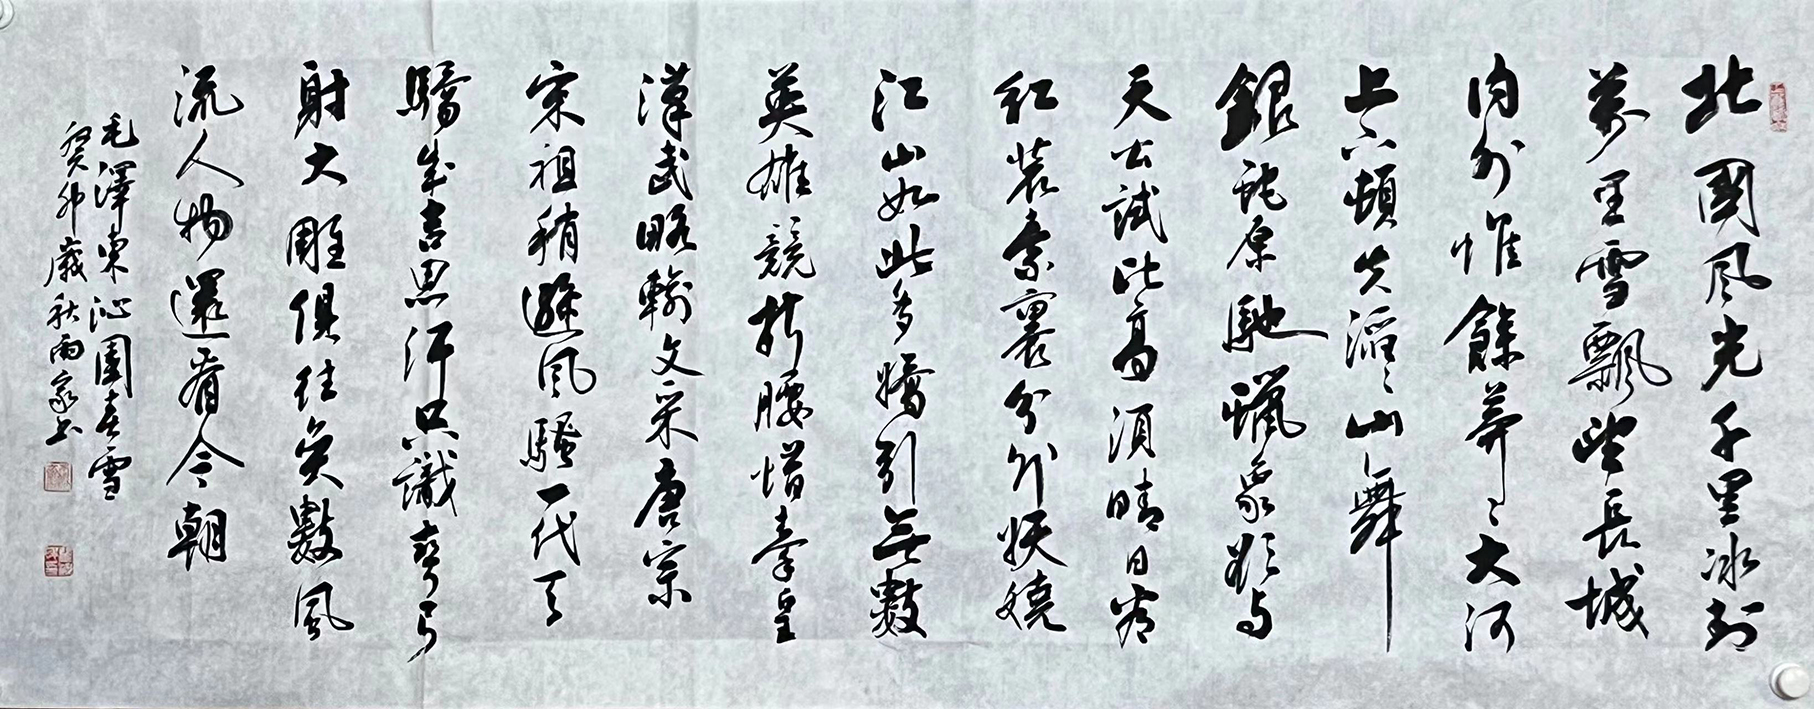 北國风光千里冰封
萬里雪飄望長城
内外惟餘莽〻大河
上下頓失滔〻山舞
銀蛇原馳蠟象欲与
天公試比高須晴日看
紅裝素裹分外妖嬈
江山如此多嬌引無數
英雄競折腰惜秦皇
漢武略輸文采唐宗
宋祖稍遜風騷一代天
驕成吉思汗只識彎弓
射大雕俱往矣數風
流人物還看今朝
毛澤東沁園春雪
癸卯歲秋雨家书